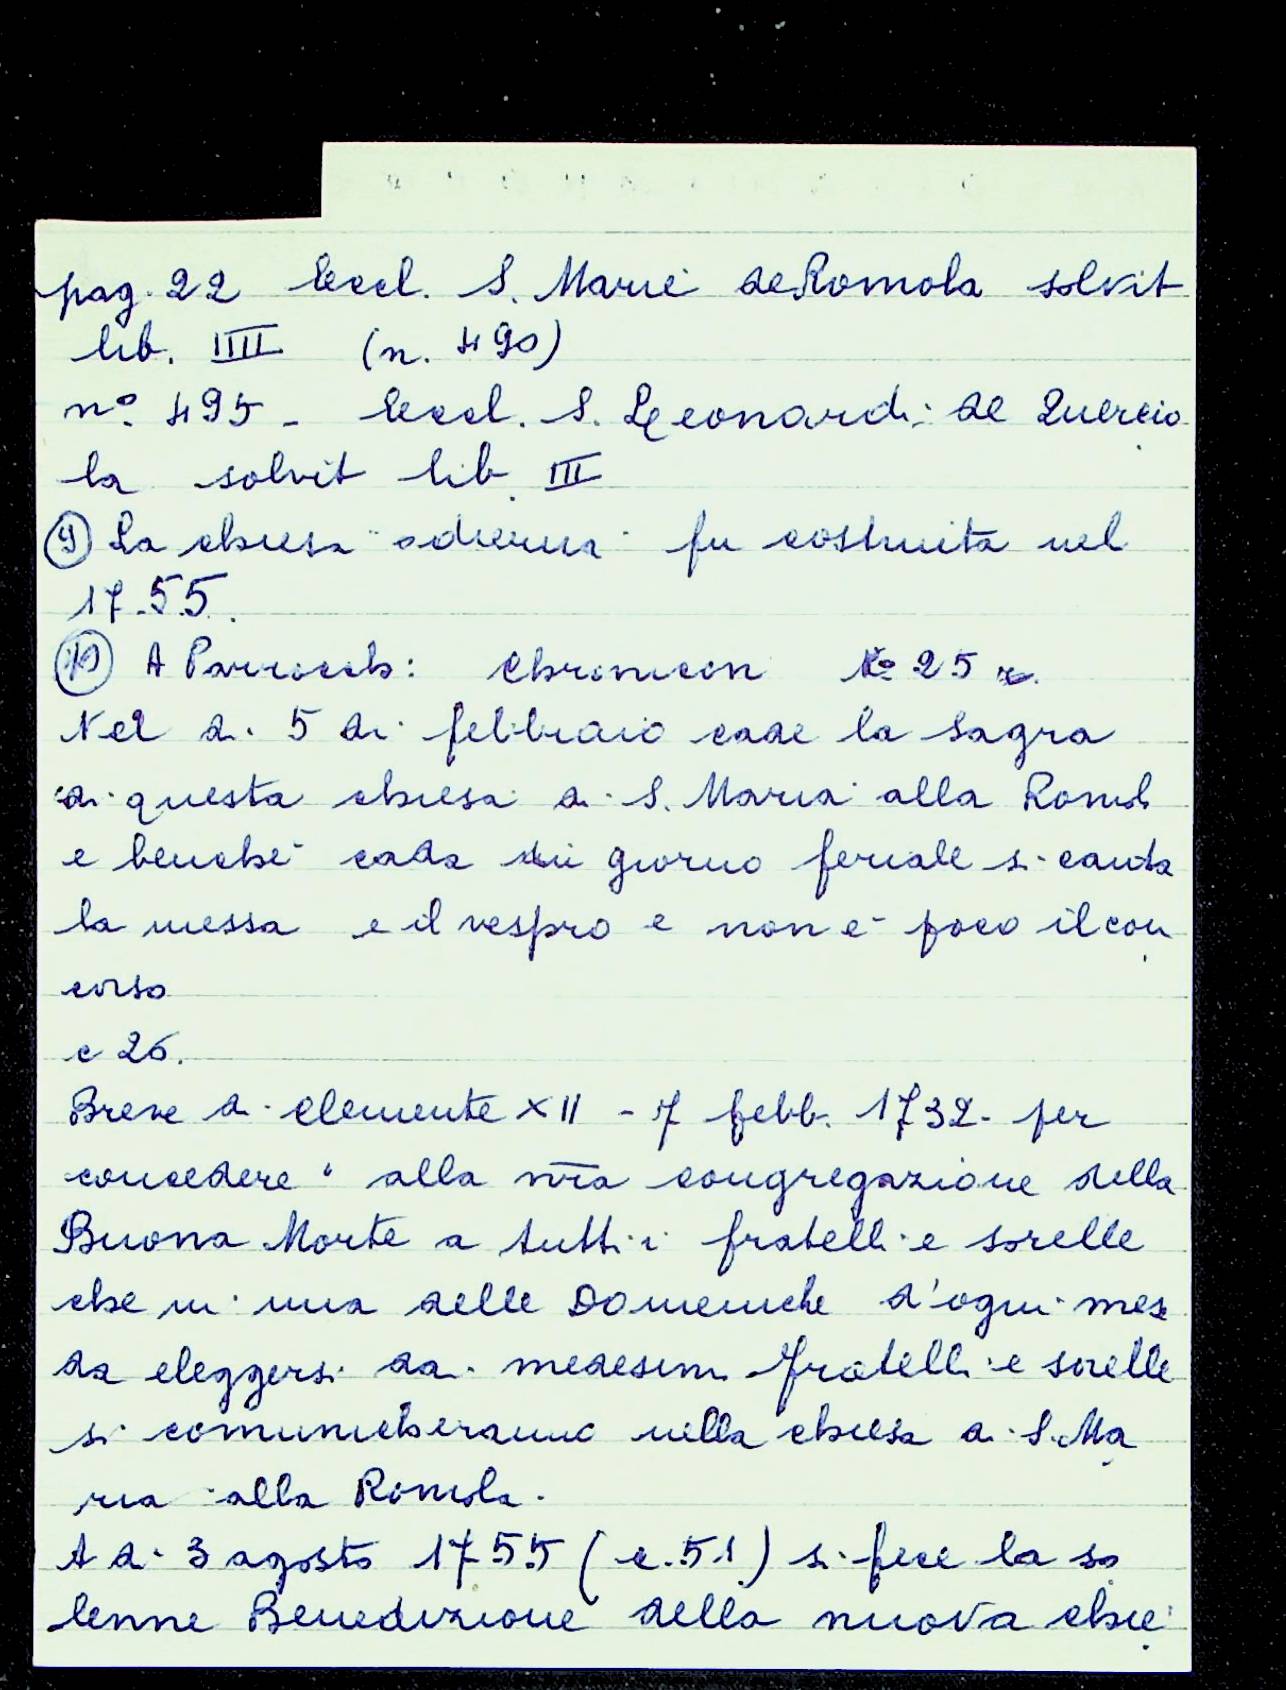 pag. 22 Eccl. S. Marie de Romola solvit
lib. IIII (n. 490)
n° 495 - Eccl. S. Leonardi de Quercio
la solvit lib. III
9) La chiesa odierna fu costruita nel
1755.
10) A Parrocch: Chronicon 25
Nel dì 5 di febbraio cade la sagra
di questa chiesa di S. Maria alla Romola
e benché cada in giorno feriale si canta
la messa e il vespro e non è poco il con
corso
c 26.
Breve di Clemente XII - 7 febb. 1732 - per
concedere alla nra congregazione della
Buona Morte a tutti i fratelli e sorelle
che in una delle Domeniche d'ogni mese
da eleggersi dai medesimi fratelli e sorelle
si comunicheranno nella chiesa di S. Ma
ria alla Romola.
A dì 3 agosto 1755 (c. 51) si fece la so
lenne Benedizione della nuova chie